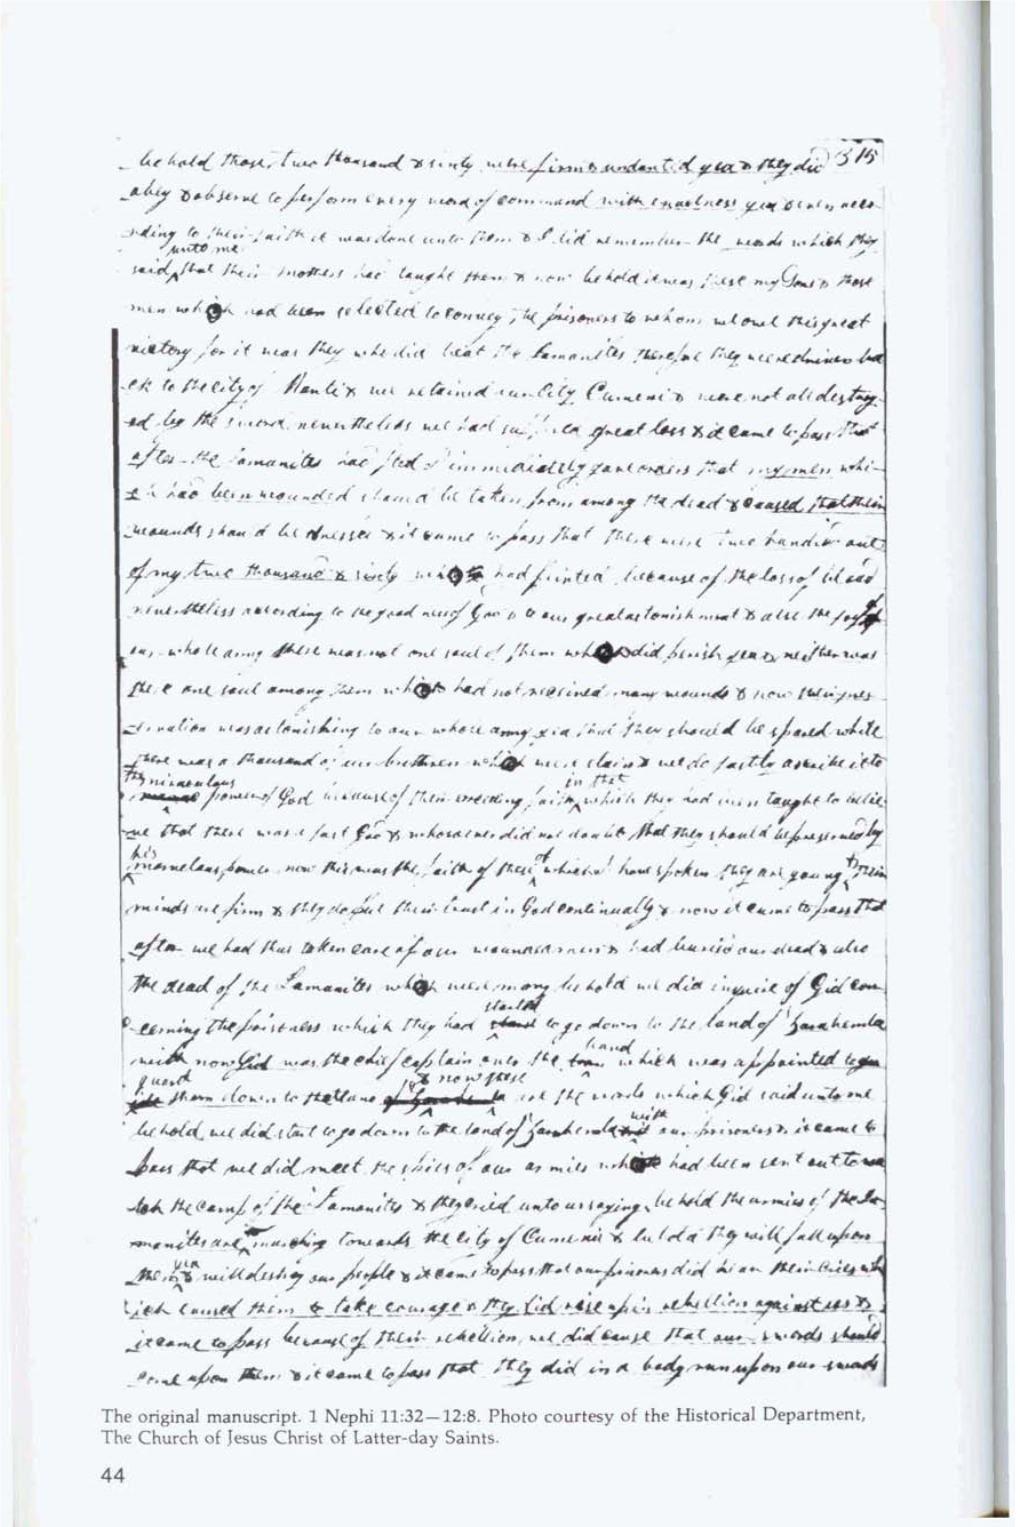 behold those two thousand & sixty were firm & undanted yea & they did 315
obey & observe to perform every word of command with exactness yea & even acco
rding to their faith it was done unto them & I did remember the words which they
unto me
said that their mothers had taught them & now behold it was these my Sons & those
men which had been selected to convey the prisoners to whom we owe this great
victory for it was they who did beat the Lamanites therefore they were driven ba
ck to the city of Manti & we retained our City Cumeni & were not all destroy
ed by the sword nevertheless we had suffered great loss & it came to pass that
after the Lamanites had fled I immediately gave orders that my men whi
ch had been wounded should be taken from among the dead & caused that their
wounds should be dressed & it came to pass that there were two hundred out
of my two thousand & sixty which had fainted because of the loss of blood
nevertheless according to the goodness of God & to our great astonishment & also the joy of
our whole army there was not one soul of them which did perish yea & neither was
there one soul among them which had not received many wounds & now their pres
ervation was astonishing to our whole army yea that they should be spared while
there was a thousand of our brethren which were slain & we do justly ascribe it to
the miraculous in that
power of God because of their exceding faith which they had been taught to belie
ve that there was a just God & whosoever did not doubt that they should be preserved by
his of
marvelous power now this was the faith of these which I have spoken they are young & their
minds are firm & they do put their trust in God continually & now it came to pass that
after we had thus taken care of our wounded men & had buried our dead & also
the dead of the Lamanites which were many behold we did inquire of Gid con
started
cerning the prisoners which they had start to go down to the land of Zarahemla
band
with now Gid was the chief captain over the which was appointed to
guard & now these
them down to the land are the words which Gid said unto me
with
behold we did start to go down to the land of Zarahemla our prisoners & it came to
pass that we did meet the spies of our armies which had been sent out to wa
tch the camp of the Lamanites & they cried unto us saying behold the armies of the La
manites are marching towards the city of Cumeni & behold they will fall upon
yea
them & will destroy our people & it came to pass that our prisoners did hear their cries wh
ich caused them to take courage & they did rise up in rebellion against us &
it came to pass because of their rebellion we did cause that our swords should
come upon them & it came to pass that they did in a body run upon our swords
The original manuscript. 1 Nephi 11:32—12:8. Photo courtesy of the Historical Department,
The Church of Jesus Christ of Latter-day Saints.
44